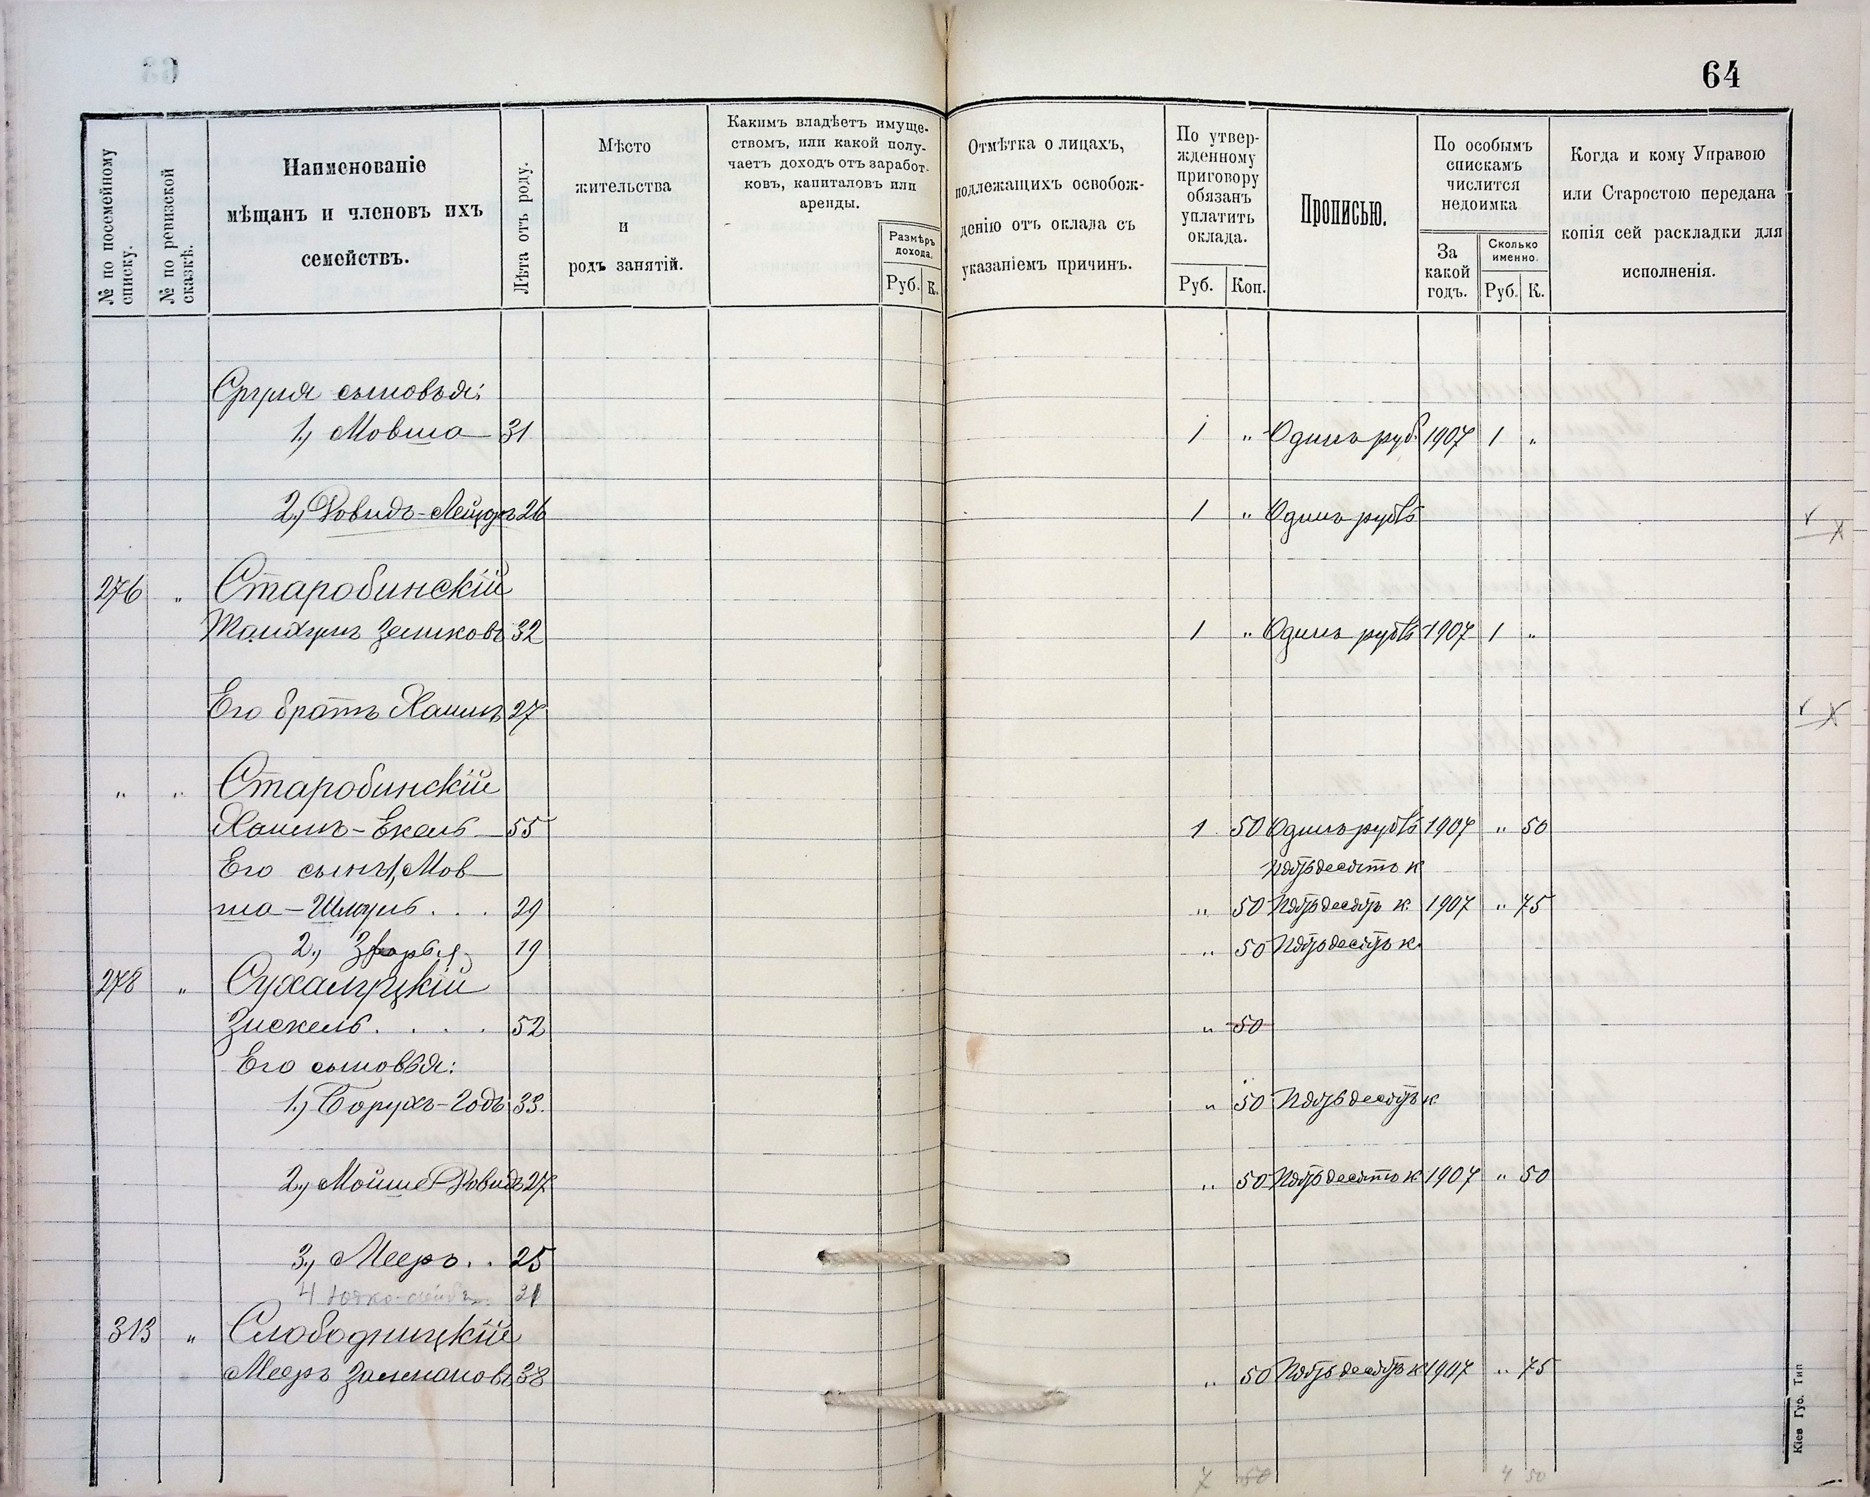 64
№ по посемейному списку.
№ по ревизской сказкѣ.
Наименованіе
мѣщанъ и членовъ ихъ
семействъ.
Лѣта отъ роду.
Мѣсто
жительства
и
родъ занятій.
Какимъ владѣетъ имуще-
ствомъ, или какой полу-
чаетъ доходъ отъ заработ-
ковъ, капиталовъ или
аренды.
Размѣръ
дохода.
Руб. К.
Отмѣтка о лицахъ,
подлежащихъ освобож-
денію отъ оклада съ
указаніемъ причинъ.
По утвер-
жденному
приговору
обязанъ
уплатить
оклада.
Руб. Коп.
Прописью.
По особымъ
спискамъ
числится
недоимка
За
какой
годъ.
Сколько
именно.
Руб. К.
Когда и кому Управою
или Старостою передана
копія сей раскладки для
исполненія.
Сруля сыновья:
1, Мовша 31 1 " Одинъ руб. 1907 1 "
2, Довидъ-Лейзоръ 26 1 " Одинъ рубль
276 " Старобинскій
Танхумъ Зеликовъ 32 1 " Одинъ рубль 1907 1 "
Его братъ Хаимъ 27
" " Старобинскій
Хаимъ-Екель 55 1 50 Одинъ рубль 1907 " 50
Его сынъ 1, Мов Пятьдесятъ к
ша-Шмуль . . . 29 " 50 Пятьдесятъ к. 1907 " 75
2, 19 " 50 Пятьдесятъ к.
278 " Сухалуцкій
Зискель . . . . 52 " 50
Его сыновья:
1, Борухъ-Годъ 33. " 50 Пятьдесятъ к
2, Мойше Довидъ 27 " 50 Пятьдесятъ к 1907 " 50
3, Мееръ . . 25
4 21
313 " Слободницкій
Мееръ Залмановъ 38 " 50 Пятьдесятъ к 1907 " 75
7 50 4 50
Кіев Губ. Тип